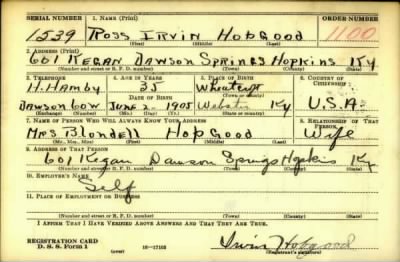 SERIAL NUMBER 1. NAME (Print) ORDER NUMBER
1539 ROSS IRVIN HOBGOOD 1100
(First) (Middle) (Last)
2. ADDRESS (Print)
601 KEGAN DAWSON SPRINGS HOPKINS KY
(Number and street or R. F. D. number) (Town) (County) (State)
3. TELEPHONE 4. AGE IN YEARS 5. PLACE OF BIRTH 6. COUNTRY OF CITIZENSHIP
H. Hamby 35
DATE OF BIRTH (Town or county)
Dawson 60W June 2 1905 Webster Ky U.S.A.
(Exchange) (Number) (Mo.) (Day) (Yr.) (State or country)
7. NAME OF PERSON WHO WILL ALWAYS KNOW YOUR ADDRESS 8. RELATIONSHIP OF THAT PERSON
Mrs Blondell HopGood Wife
(Mr., Mrs., Miss) (First) (Middle) (Last)
9. ADDRESS OF THAT PERSON
601 Kegan Dawson Springs Hopkins Ky
(Number and street or R. F. D. number) (Town) (County) (State)
10. EMPLOYER'S NAME
Self
11. PLACE OF EMPLOYMENT OR BUSINESS
(Number and street or R. F. D. number) (Town) (County) (State)
I AFFIRM THAT I HAVE VERIFIED ABOVE ANSWERS AND THAT THEY ARE TRUE.
REGISTRATION CARD
D. S. S. Form 1 (over) 16—17105 Irvin Hobgood
(Registrant's signature)